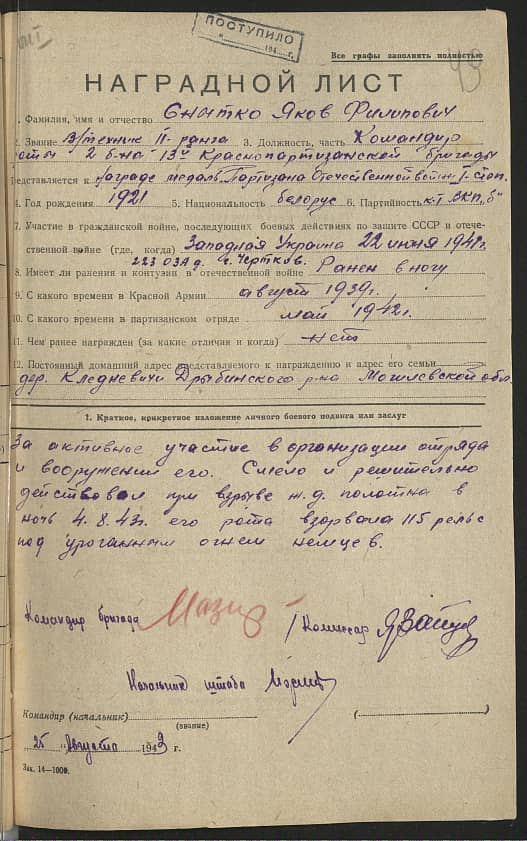 ПОСТУПИЛО
194 г.
49
Все графы заполнять полностью
НАГРАДНОЙ ЛИСТ
1. Фамилия, имя и отчество Снытко Яков Филипович
2. Звание В/техник II ранга 3. Должность, часть Командир
роты 2 б-на 13й Краснопартизанской бригады
Представляется к награде медаль "Партизана Отечественной войны" I степ.
4. Год рождения 1921 5. Национальность белорус 6. Партийность к-т ВКП "б"
7. Участие в гражданской войне, последующих боевых действиях по защите СССР и отече-
ственной войне (где, когда) Западная Украина 22 июня 1941г.
223 ОЗАД г. Чертков.
8. Имеет ли ранения и контузии в отечественной войне Ранен в ногу
9. С какого времени в Красной Армии август 1939г.
10. С какого времени в партизанском отряде май 1942г.
11. Чем ранее награжден (за какие отличия и когда) нет
12. Постоянный домашний адрес представляемого к награждению и адрес его семьи
дер. Кледневичи Дрыбинского р-на Могилевской обл.
1. Краткое, конкретное изложение личного боевого подвига или заслуг
За активное участие в организации отряда
и вооружении его. Смело и решительно
действовал при взрыве ж.д. полотна в
ночь 4.8.43г. его рота взорвала 115 рельс
под ураганным огнем немцев.
Командир бригады
Комиссар
Начальник штаба
Командир (начальник)
(звание)
"25" Августа 1943 г.
Зак. 14—1000.